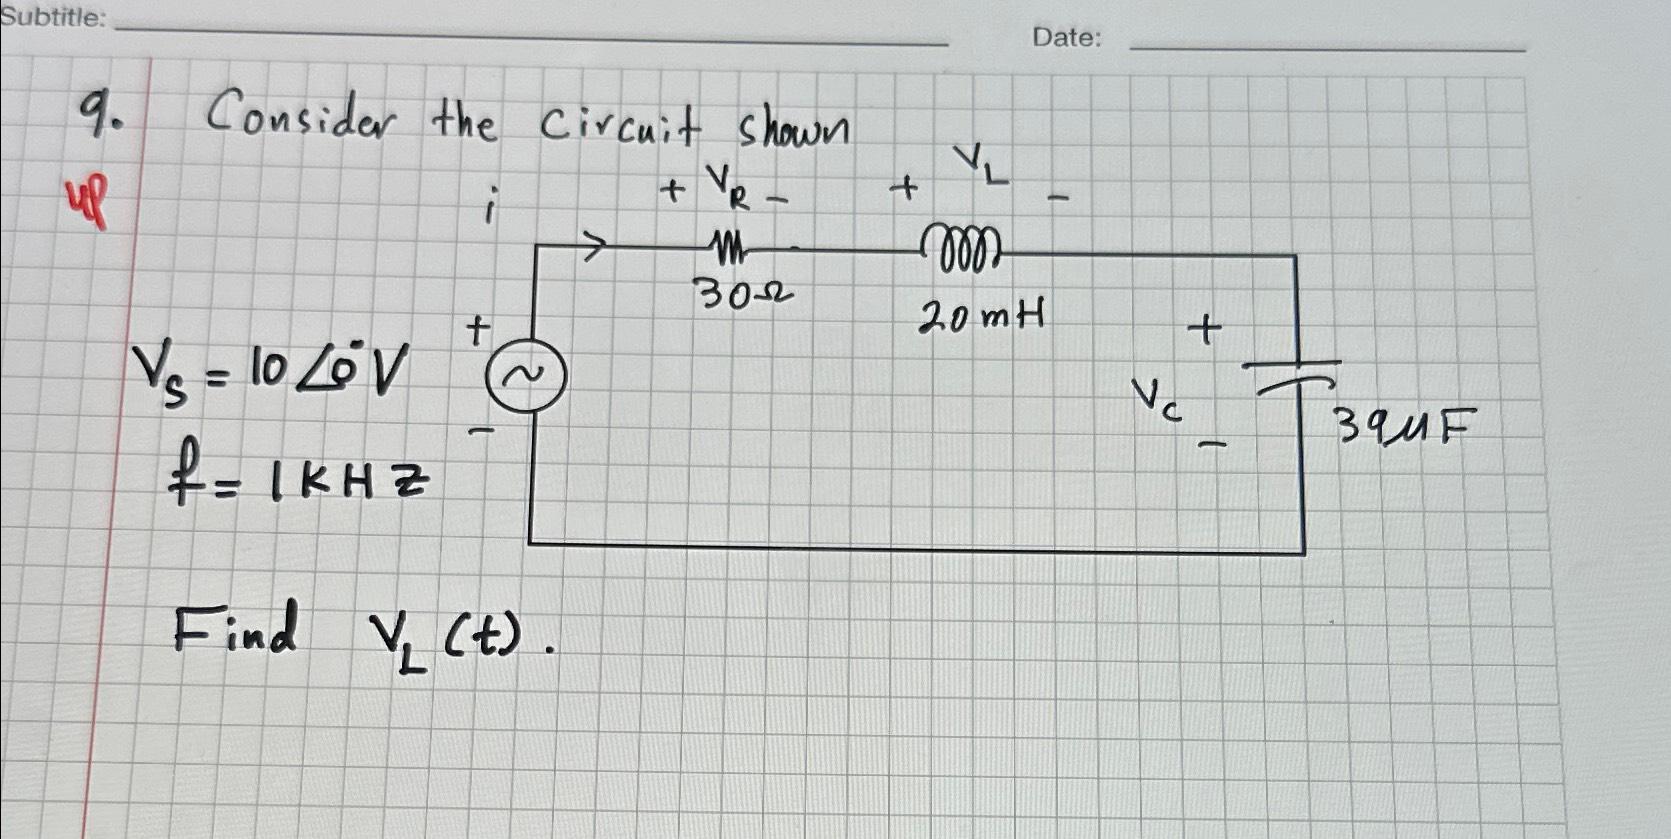 Subtitle:
Date:
9. Consider the circuit shown
4P
i + V_R - + V_L -
30Ω
20mH
+
V_S = 10∠0° V
+
-
V_C
-
39μF
f = 1KHZ
Find V_L(t).